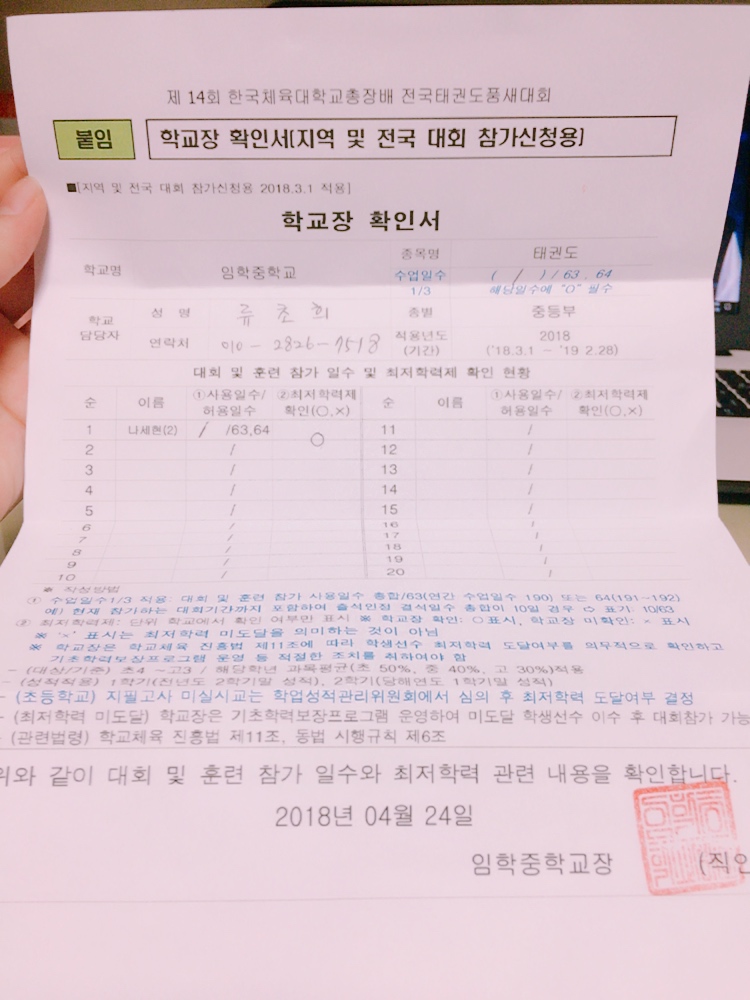 제 14회 한국체육대학교총장배 전국태권도품새대회
붙임 학교장 확인서[지역 및 전국 대회 참가신청용]
■[지역 및 전국 대회 참가신청용 2018.3.1 적용]
학교장 확인서
학교명 임학중학교 종목명 태권도
수업일수 1/3 ( / ) / 63, 64
해당일수에 "O" 필수
학교 담당자 성 명 류초희 종별 중등부
연락처 010-2826-7518 적용년도 (기간) 2018 ('18.3.1 - '19 2.28)
대회 및 훈련 참가 일수 및 최저학력제 확인 현황
순 이름 ①사용일수/허용일수 ②최저학력제 확인(○,×) 순 이름 ①사용일수/허용일수 ②최저학력제 확인(○,×)
1 나세현(2) / /63,64 ○ 11 /
2 / 12 /
3 / 13 /
4 / 14 /
5 / 15 /
6 / 16 /
7 / 17 /
8 / 18 /
9 / 19 /
10 / 20 /
※ 작성방법
① 수업일수1/3 적용: 대회 및 훈련 참가 사용일수 총합/63(연간 수업일수 190) 또는 64(191~192)
예) 현재 참가하는 대회기간까지 포함하여 출석인정 결석일수 총합이 10일 경우 ⇨ 표기: 10/63
② 최저학력제: 단위 학교에서 확인 여부만 표시 ※ 학교장 확인: ○표시, 학교장 미확인: × 표시
※ '×' 표시는 최저학력 미도달을 의미하는 것이 아님
※ 학교장은 학교체육 진흥법 제11조에 따라 학생선수 최저학력 도달여부를 의무적으로 확인하고
기초학력보장프로그램 운영 등 적절한 조치를 취하여야 함
- (대상/기준) 초4 ~고3 / 해당학년 과목평균(초 50%, 중 40%, 고 30%)적용
- (성적적용) 1학기(전년도 2학기말 성적), 2학기(당해연도 1학기말 성적)
- (초등학교) 지필고사 미실시교는 학업성적관리위원회에서 심의 후 최저학력 도달여부 결정
- (최저학력 미도달) 학교장은 기초학력보장프로그램 운영하여 미도달 학생선수 이수 후 대회참가 가능
- (관련법령) 학교체육 진흥법 제11조, 동법 시행규칙 제6조
위와 같이 대회 및 훈련 참가 일수와 최저학력 관련 내용을 확인합니다.
2018년 04월 24일
임학중학교장 (직인